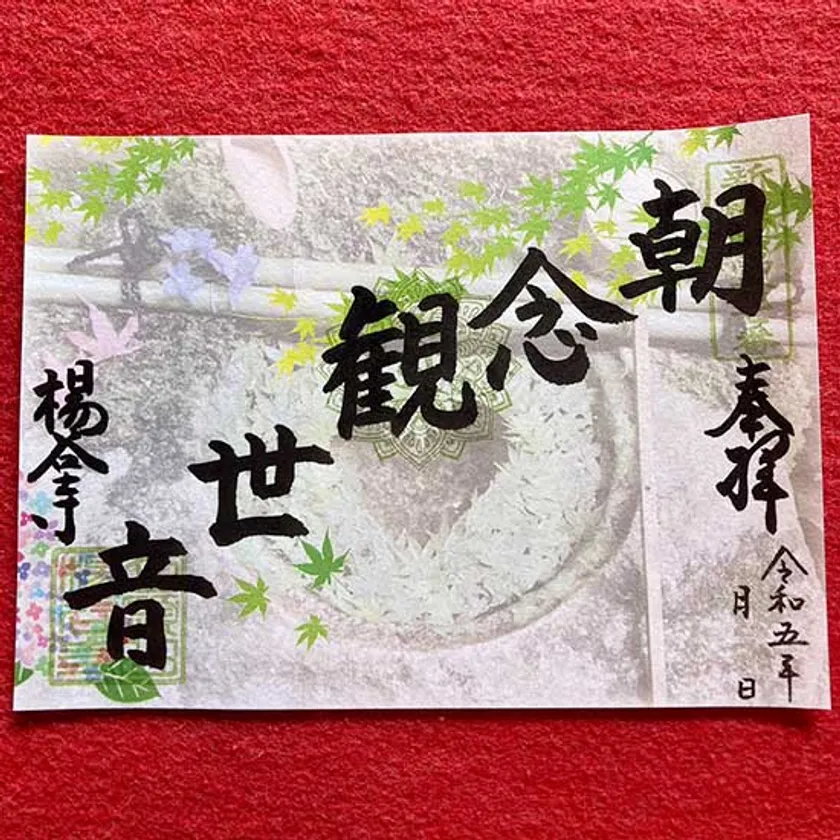 朝念観世音
奉拝
令和五年
月 日
楊谷寺